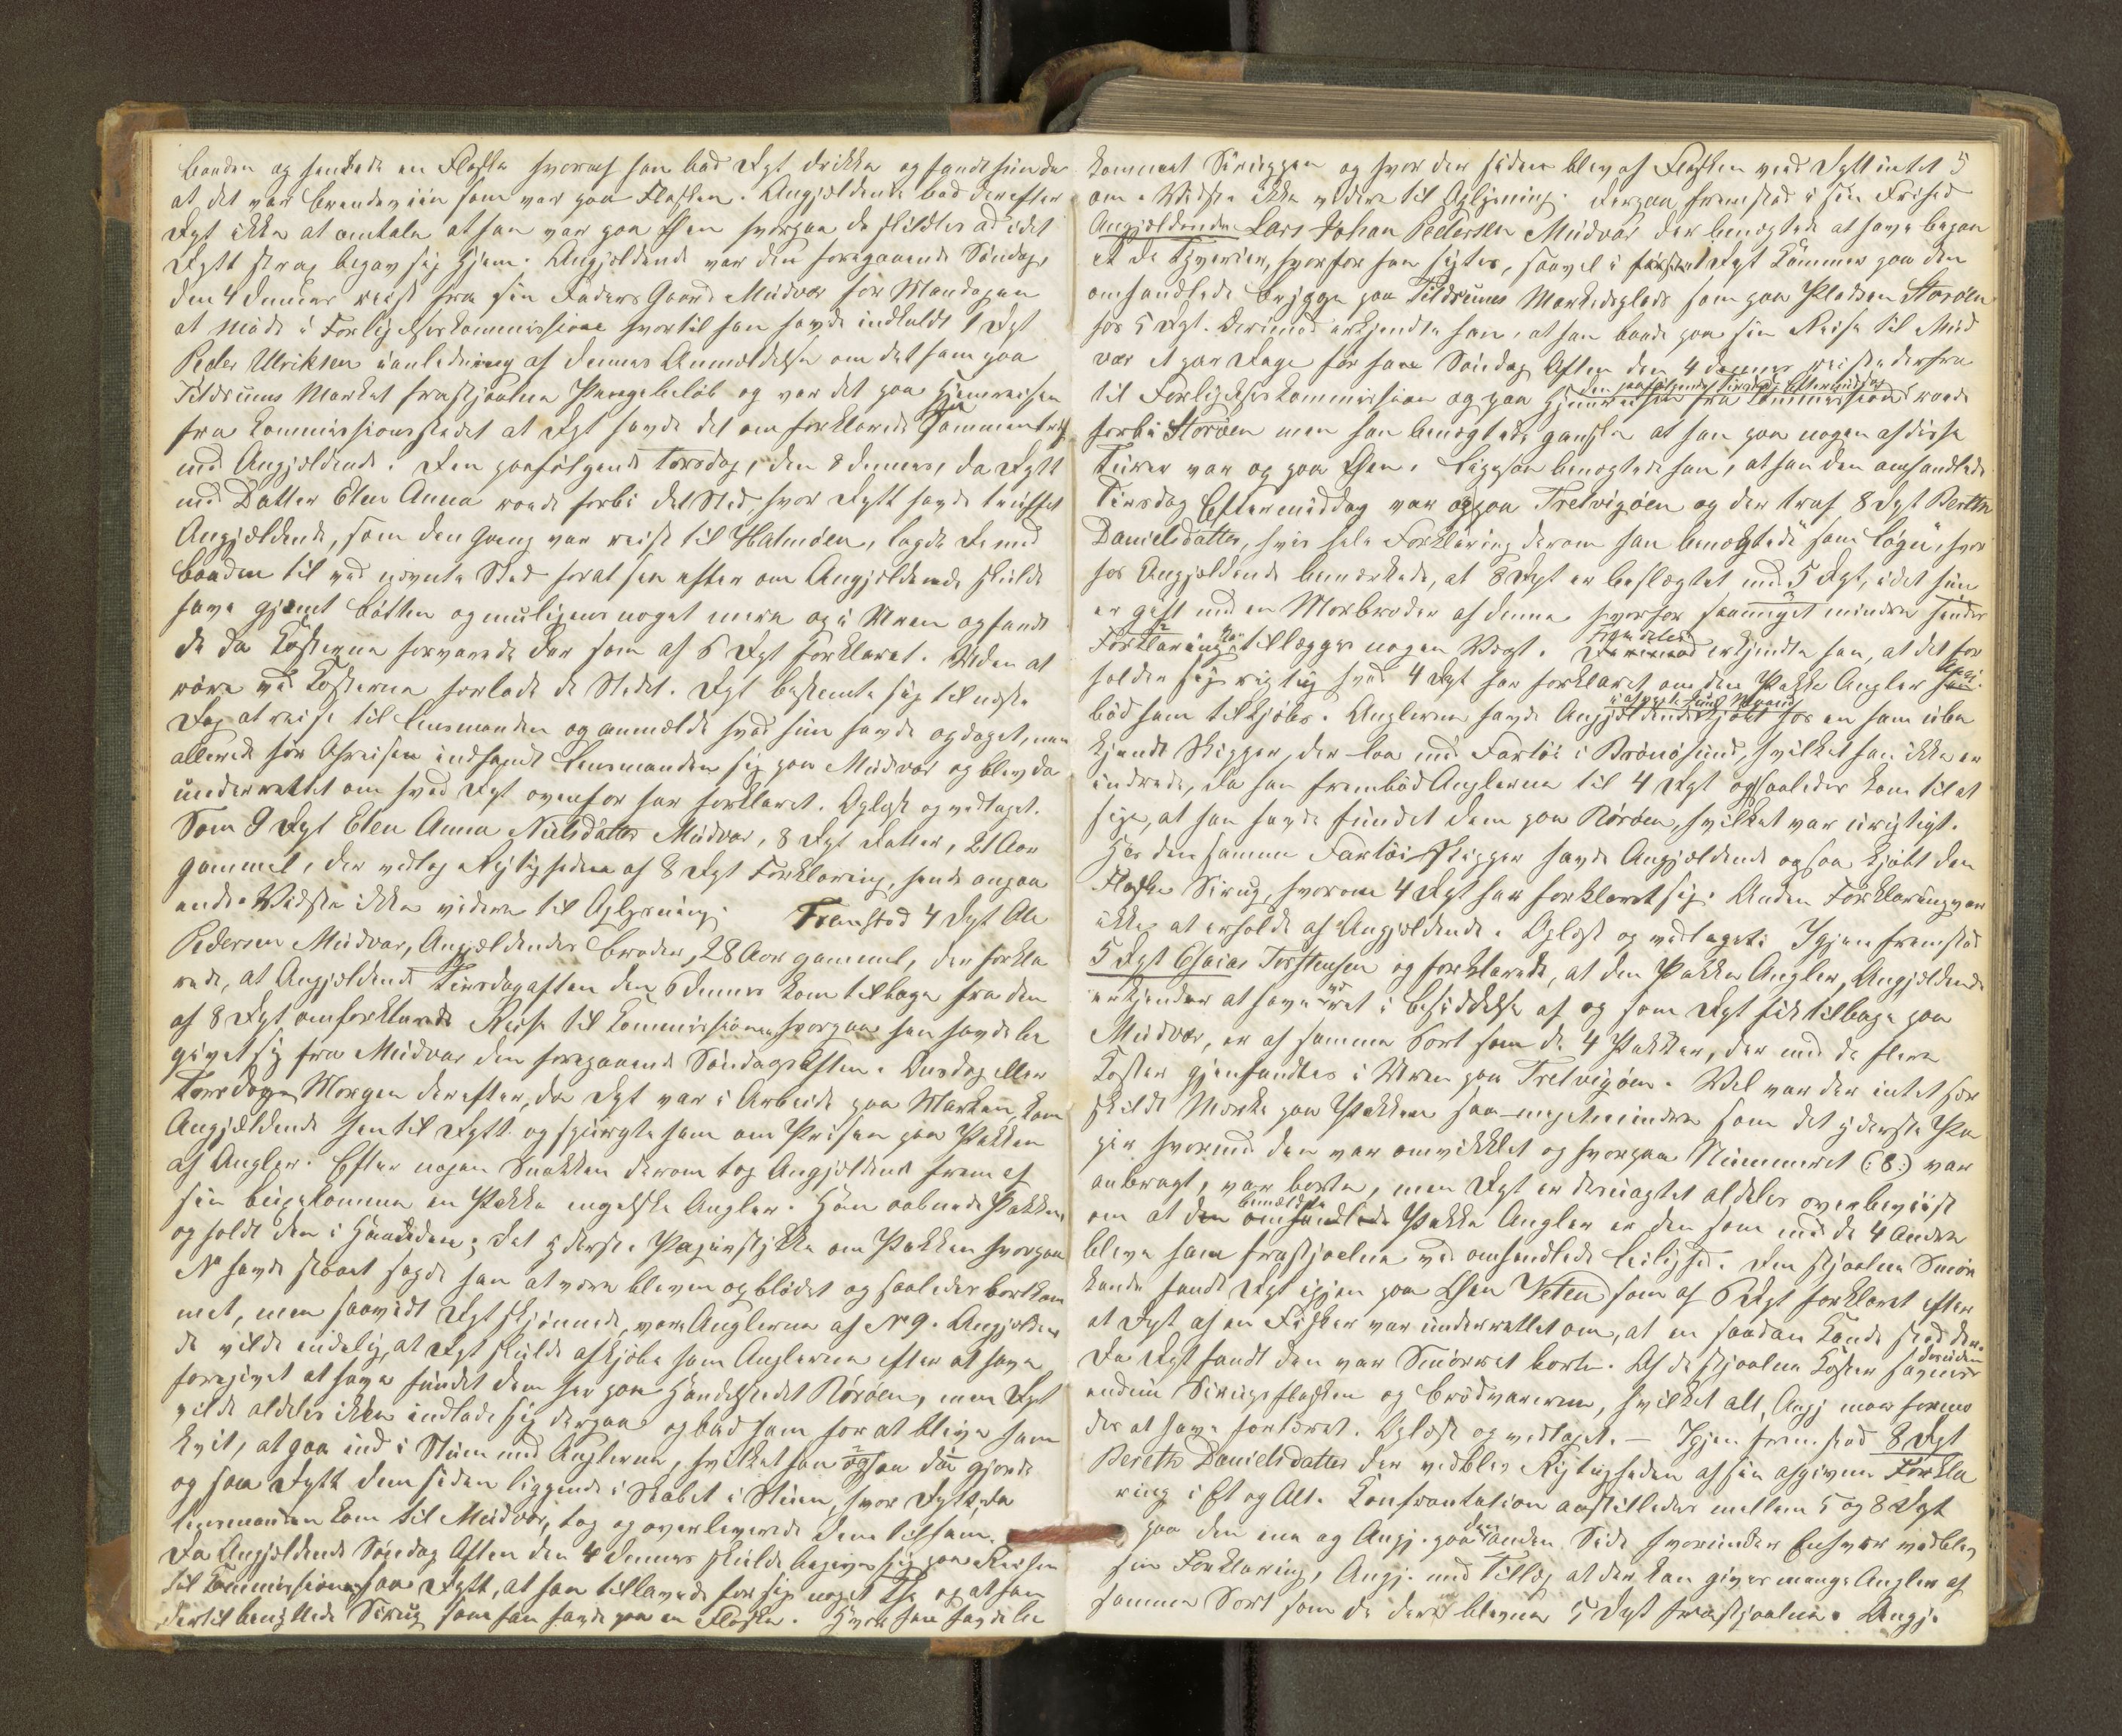 baaden og hentede en Flaske hvoraf han bad Dpt drikke og fandt hun da
at det var Brændeviin som var paa Flasken. Angjældende bad derefter
Dpt ikke at omtale at han var paa Øen hvorpaa de skildtes ad idet
Dptt strax begav sig hjem. Angjældende var den foregaaende Søndag,
den 4 dennes reist fra sin Faders Gaard Mudvær for Mandagen
at møde i Forligelseskommissione hvortil han havde indkaldt 1 Dpt
Peder Ulriksen i anledning af dennes Anmeldelse om det ham paa
Tildrums Marked frastjaalne Pengebeløb og var det paa Hjemreisen
fra Kommissionsstedet at Dpt havde det om forklarede Sammentræf
med Angjældende. Den paafølgende Torsdag, den 8 dennes, da Dptt
med Datter Elen Anna roede forbi det Sted, hvor Dptt havde truffet
Angjældende, som den Gang var reist til Halmøen, lagde de med
baaden til ved nævnte Sted for at see efter om Angjældende skulde
have gjemt Bøtten og muligens noget mere og i Uren og fandt
de da Kosterne forvarede der som af 6 Dpt forklaret. Uden at
røre ved Kosterne forlode de Stedet. Dpt bestemte sig til næste
Dag at reise til Lensmanden og anmelde hvad hun havde opdaget, men
allerede før Afreisen indfandt Lensmanden sig paa Mudvær og blev da
underrettet om hvad Dpt ovenfor har forklaret. Oplæst og vedtaget.
Som 9 Dpt Elen Anna Nielsdatter Mudvær, 8 Dpt Datter, 21 Aar
gammel, der vedtog Rigtigheden af 8 Dpt Forklaring, hende angaa
ende. Vidste ikke videre til Oplysning. Fremstod 4 Dpt Ole
Pedersen Mudvær, Angjældendes Broder, 28 Aar gammel, der forkla
rede, at Angjældende Tirsdagaften den 6 dennes kom tilbage fra den
af 8 Dpt omforklarede Reise til Kommissionen hvorpaa han havde be
givet sig fra Mudvær den foregaaende Søndags Aften. Onsdag eller
Torsdags Morgen derefter, da Dpt var i Arbeide paa Marken, kom
Angjældende hen til Dptt og spurgte ham om Prisen paa Pakken
af Angler. Efter nogen Snakken derom tog Angjældende frem af
sin buxelomme en Pakke engelske Angler. Han aabnede Pakken
og holdt den i Haanden; det yderste Papirstykke om Pakken hvorpaa
No havde staaet sagde han at være bleven opblødet og saaledes bortkom
met, men saavidt Dpt skjønnede, vare Anglerne af No 9. Angjælden
de vilde endelig, at Dpt skulde afkjøbe ham Anglerne efter at have
foregivet at have fundet dem her paa Handelsstedet Rørøen, men Dpt
vilde aldeles ikke indlade sig derpaa og bad ham for at blive ham
kvit, at gaa ind i Stuen med Anglerne, hvilket han ogsaa da gjorde
og saa Dptt dem siden liggende i Skabet i Stuen, hvor Dptt, da
Lensmanden kom til Mudvær, tog og overleverede dem til ham.
Da Angjældende Søndag Aften den 4 dennes skulde begive sig paa Reisen
til Kommissionen saa Dptt, at han tillavede for sig noget The og at han
dertil benyttede Sirup som han havde paa en Flaske. Hvor han havde be
kommet Siruppen og hvor der siden blev af Flasken veed Dptt intet 5
om. Vidste ikke videre til Oplysning. Derpaa fremstod i sin Frihed
Angjældende Lars Johan Pedersen Mudvær der benægtede at have begaa
et de Tyverier, hvorfor han sigtes, saavel i første Dpt Kammer paa den
omhandlede brygge paa Tildrums Markedsplads som paa Pladsen Storøen
hos 5 Dpt. Derimod erkjendte han, at han baade paa sin Reise til Mud
vær et par Dage før han Søndag Aften den 4 dennes reiste derfra
til Forligelseskommissione og paa Hjemreisen fra Kommissionen roede
den paafølgende Tirsdag Eftermiddag
forbi Storøen men han benægtede ganske at han paa nogen af disse
Turer var og paa Øen. Ligesaa benægtede han, at han den omhandlede
Tirsdag Eftermiddag var oppaa Tretvigøen og der traf 8 Dpt Berith
Danielsdatter, hvis hele Forklaring derom han benægtede som Løgn, hvor
hos Angjældende bemærkede, at 8 Dpt er beslægtet med 5 Dpt, idet hun
er gift med en Morbroder af denne hvorfor saameget mindre hendes
Forklaring kan tillægges nogen Vægt. Ligeledes erkjendte han, at det for
holder sig rigtig hvad 4 Dpt har forklaret om den Pakke Angler Angj.
bød ham tilkjøbs. Anglerne havde Angjældende kjøbt hos en ham ube
kjendt Skipper, der laa med Fartøi i Brønøsund, hvilket han ikke er
indrede, da han frembød Anglerne til 4 Dpt og saaledes kom til at
sige, at han havde fundet dem paa Rørøen, hvilket var urigtigt.
Hos den samme Fartøiskipper havde Angjældende ogsaa kjøbt den
Flaske Sirup, hvorom 4 Dpt har forklaret sig. Anden Forklaring var
ikke at erholde af Angjældende. Oplæst og vedtaget. Igjen fremstod
5 Dpt Esaias Torstensen og forklarede, at den Pakke Angler, Angjældende
erkjender at have været i besiddelse af og som Dpt fik tilbage paa
Mudvær, er af samme Sort som de 4 Pakker, der med de flere
Koster gjenfandtes i Uren paa Tretvigøen. Vel var der intet sær
skilt Mærke paa Pakken saa meget mindre som det yderste Pa
pir hvormed den var omviklet og hvorpaa Nummeret (:8:) var
anbragt, var borte, men Dpt er desuagtet aldeles overbeviist
om at den bemeldte Pakke Angler er den som med de 4 andre
bleve ham frastjaalne ved omhandlede Leilighed. Den stjaalne Smør
kande fandt Dpt igjen paa Øen Veten som af 6 Dpt forklaret efter
at Dpt af en Fisker var underrettet om, at en saadan Kande stod der.
Da Dpt fandt den var Smørret borte. Af de stjaalne Koster savnes desuden
endnu Sirupsflasken og brødvarerne, hvilket alt Angj maa formo
des at have fortæret. Oplæst og vedtaget. — Igjen fremstod 8 Dpt
Bereth Danielsdatter der vedblev Rigtigheden af sin afgivne Forkla
ring i Et og Alt. Konfrontation anstilledes mellem 5 og 8 Dpt
paa den ene og Angj. paa den anden Side hvorunder Enhver vedblev
sin Forklaring, Angj. med Tillæg at der kan gives mange Angler af
samme Sort som de der blevne 5 Dpt frastjaalne. Angj.